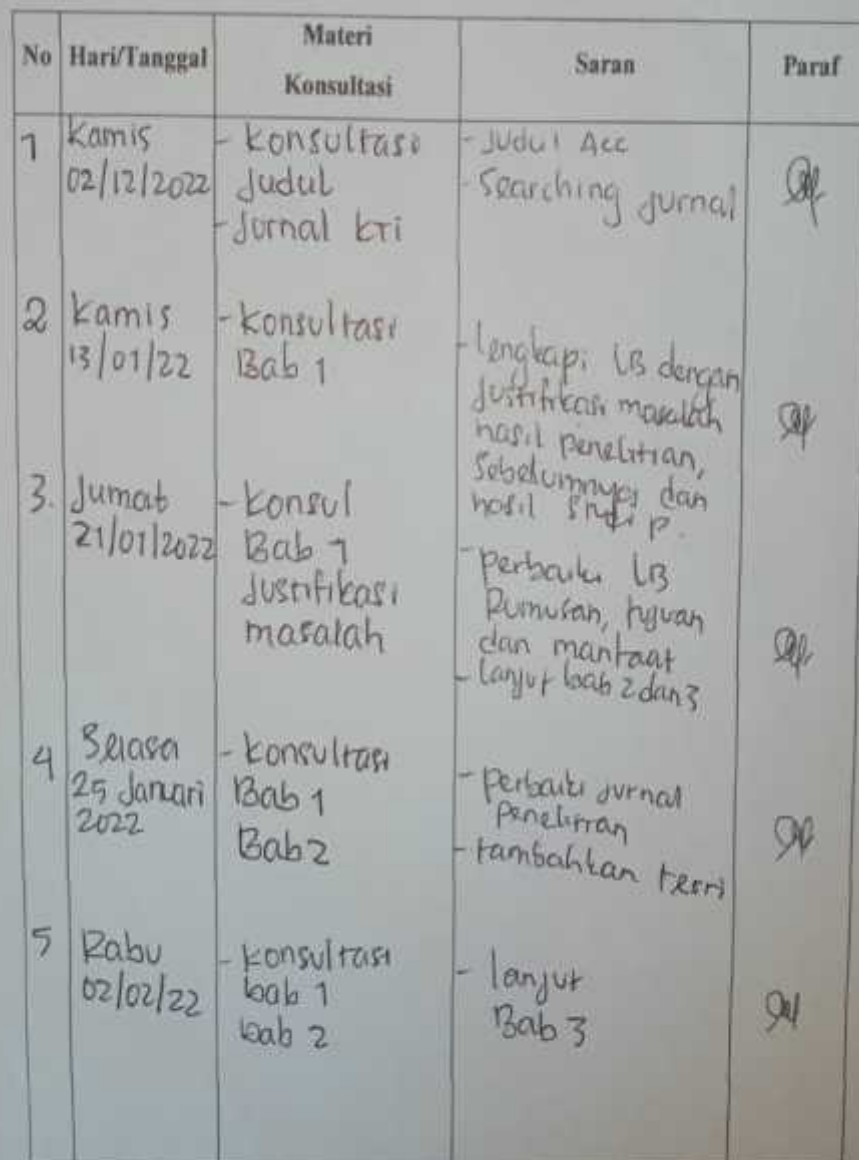 No Hari/Tanggal Materi Konsultasi Saran Paraf
1 Kamis 02/12/2022
- Konsultasi
Judul
- Jurnal kti
- Judul Acc
- Searching jurnal
2 Kamis 13/01/22
- Konsultasi
Bab 1
- lengkapi LB dengan
Justifikasi masalah
hasil penelitian,
Sebelumnya dan
hasil
3. Jumat 21/01/2022
- Konsul
Bab 1
Justifikasi
masalah
- perbaiki LB
Rumusan, tujuan
dan manfaat
- Lanjut bab 2 dan 3
4 Selasa
25 Januari
2022
- konsultasi
Bab 1
Bab 2
- perbaiki jurnal
penelitian
- tambahkan teori
5 Rabu
02/02/22
- konsultasi
bab 1
bab 2
- lanjut
Bab 3